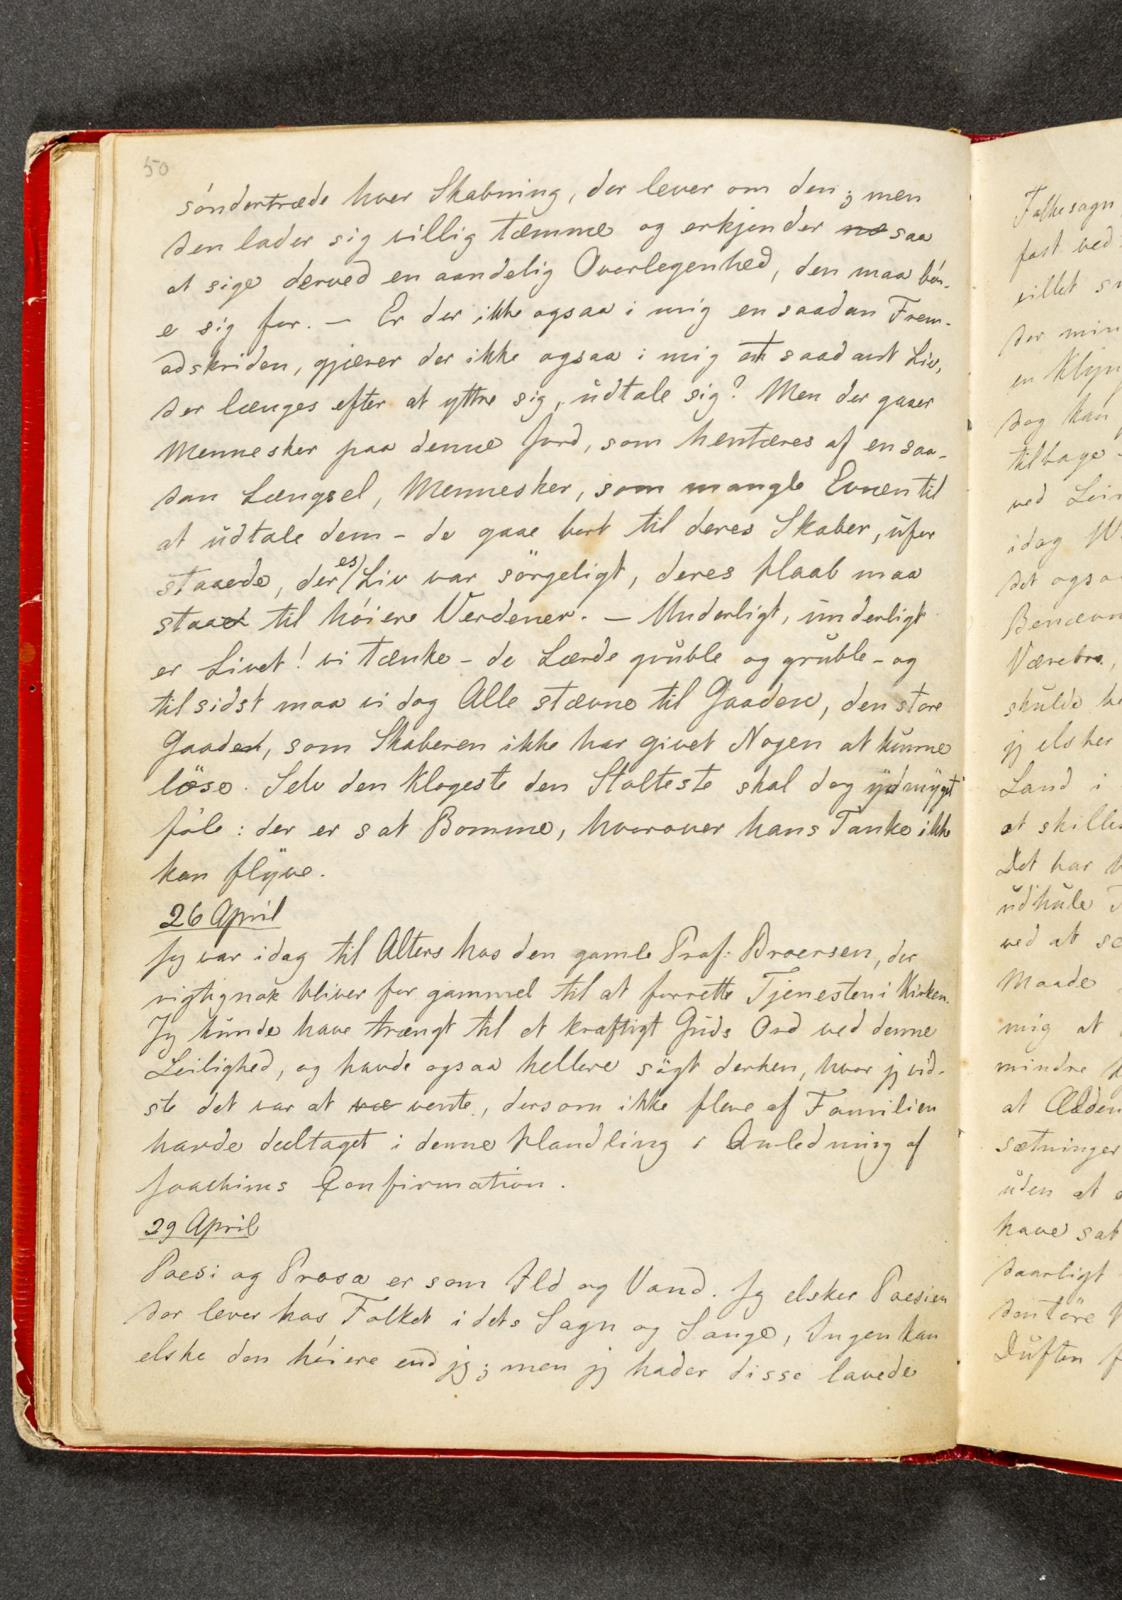 50
söndertræde hver Skabning, der lever om den; men
den lader sig villig tæmme og erkjender næ saa
at sige derved en aandelig Overlegenhed, den maa böi-
e sig for. — Er der ikke ogsaa i mig en saadan Frem-
adskriden, gjærer der ikke ogsaa i mig et saadant Liv,
der længes efter at yttre sig, udtale sig? Men der gaaer
Mennesker paa denne Jord, som hentæres af en saa-
dan Længsel, Mennesker, som mangle Evnen til
at udtale dem - de gaae bort til deres Skaber, ufor
staaede, deres Liv var sörgeligt, deres Haab maa
staaet til höiere Verdener. — Underligt, underligt
er Livet! vi tænke - de Lærde gruble og gruble - og
tilsidst maa vi dog Alle stævne til Gaaden, den store
Gaaden, som Skaberen ikke har givet Nogen at kunne
löse. Selv den Klogeste den Stolteste skal dog ydmyget
föle: der er sat Bomme, hvorover hans Tanke ikke
kan flyve.
26 April
Jeg var idag til Alters hos den gamle Prof: Broersen, der
rigtignok bliver for gammel til at forrette Tjenesten i Kirken.
Jeg kunde have trængt til et kraftigt Guds Ord ved denne
Leilighed, og havde ogsaa hellere sögt derhen, hvor jeg vid-
ste det var at væ vente, dersom ikke flere af Familien
havde deeltaget i denne Handling i Anledning af
Joachims Confirmation.
29 April
Poesi og Prosa er som Ild og Vand. Jeg elsker Poesien
der lever hos Folket i dets Sagn og Sange, Ingen kan
elske den höiere end jeg; men jeg hader disse lavede
Folkesagn
fast ved
villet
der min
en
dog kan
tilbage
ved
idag
det ogsaa
skulde
jeg elsker
Land i
at skille
Det har
udhule
ved at
Maade
mig at
mindre
at
sætninger
uden at
have sat
daarligt
Duften